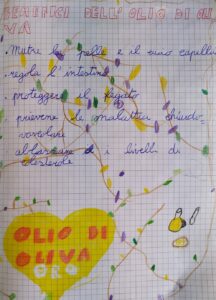 BENEFICI DELL'OLIO DI OLI
VA
. Nutre la pelle e il cuoio capellu
. regola l'intestino
. protegge il fegato
. previene le malattie
vascolare
abbassare i livelli di
colesterolo
OLIO DI
OLIVA
ORO